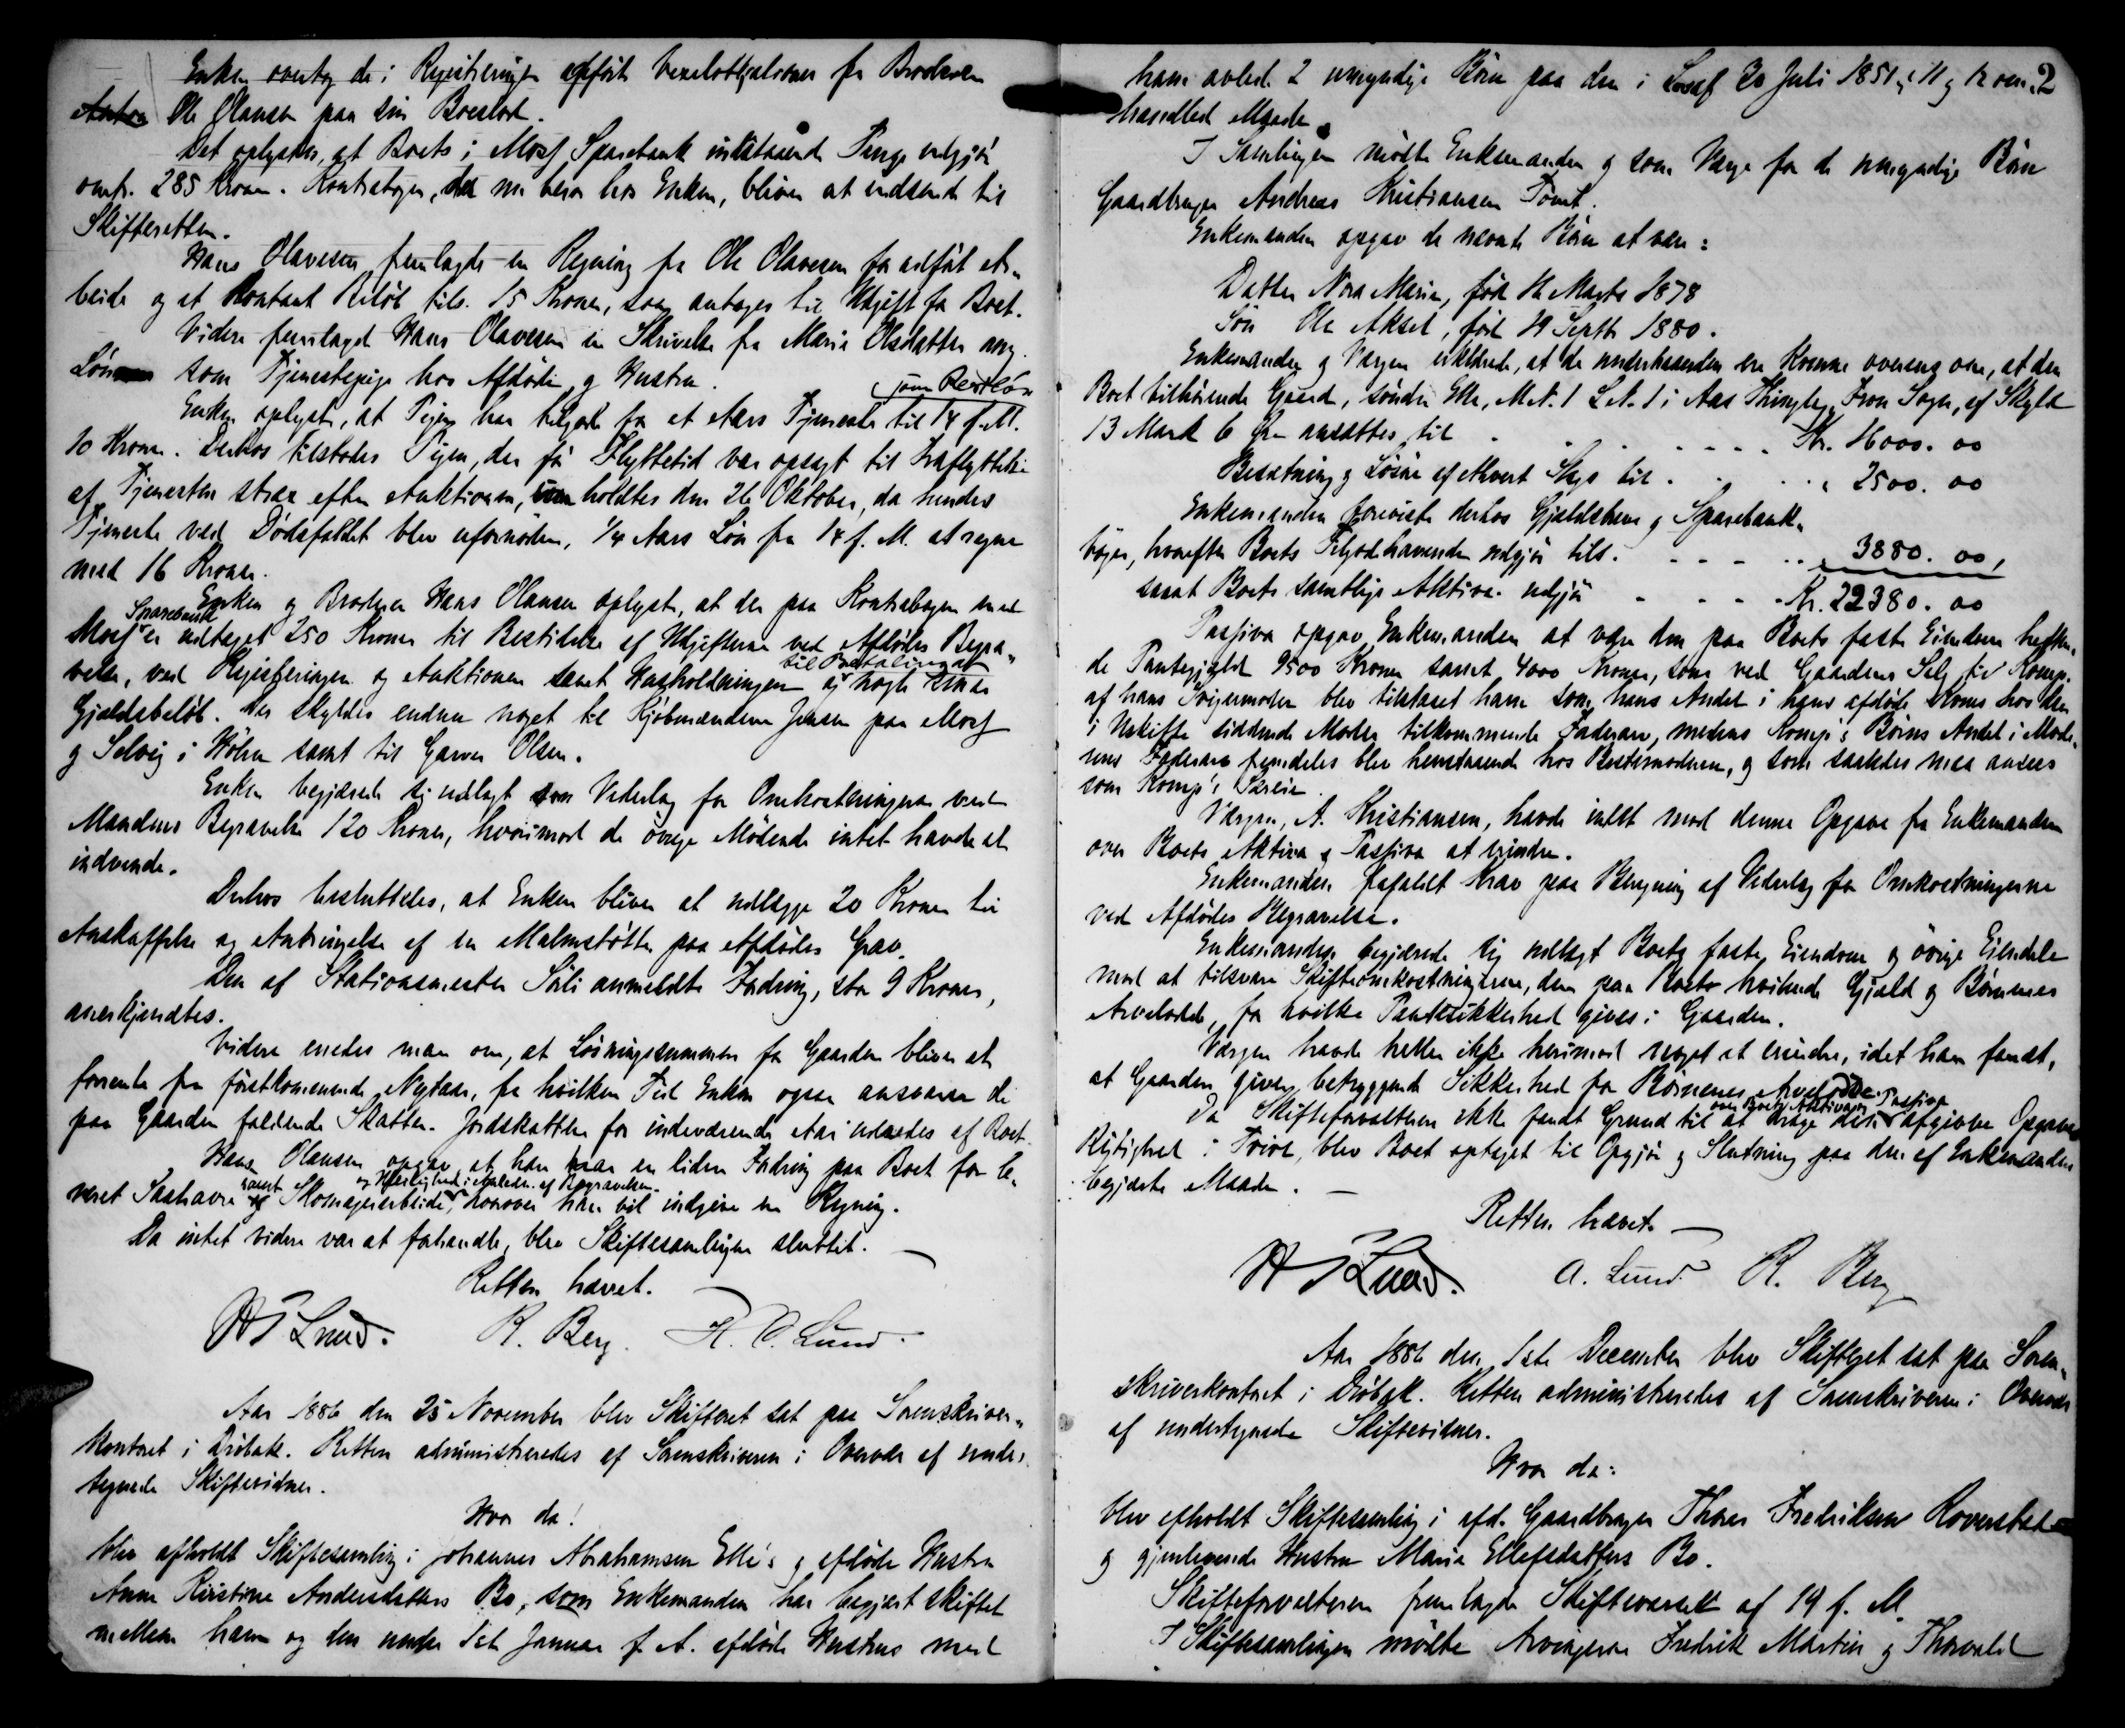 Enken overtog de i Registreringen opførte Vexelobligationer fra Broderen
Ole Olausen paa sin Boeslod.
Det oplystes, at Boets i Moss Sparebank indestaaende Penge udgjør
omtr. 285 Kroner. Kontrabogen, der nu beror hos Enken, bliver at indsende til
Skifteretten.
Hans Olavesen fremlagde en Regning fra Ole Olavesen for udført Ar-
beide og et kontant Beløb tils. 15 Kroner, som antages til Udgift for Boet.
Videre fremlagde Hans Olavesen en Skrivelse fra Maria Olsdatter ang.
Løn som Tjenestepige hos Afdøde og Hustru.
Enken oplyste, at Pigen har tilgode for et Aars Tjeneste til 14 f. M. som Restløn
10 Kroner. Derhos tilstodes Pigen, der før Flyttetid var opsagt til Fraflyttelse
af Tjenesten strax efter Auktionen, som holdtes den 26 Oktober, da hendes
Tjeneste ved Dødsfaldet blev ufornøden, 1/4 Aars Løn fra 14 f. M. at regne
med 16 Kroner.
Enken og Broderen Hans Olausen oplyste, at der paa Kontrabogen med
Moss Sparebank er udtaget 250 Kroner til Bestridelse af Udgifterne ved Afdødes Begra-
velse, ved Registreringen og Auktionen samt Husholdningen og til Betaling af nogle smaa
Gjældsbeløb. Der skyldes endnu noget til Kjøbmændene Jensen paa Moss
og Solvig i Hølen samt til Garver Olsen.
Enken begjærede sig udlagt som Vederlag for Omkostningerne ved
Mandens Begravelse 120 Kroner, hvorimod de øvrige Mødende intet havde at
indvende.
Derhos besluttedes, at Enken bliver at udlægge 20 Kroner til
Anskaffelse og Anbringelse af en Malmstøtte paa Afdødes Grav.
Den af Stationsmester Sæli anmeldte Fordring, stor 9 Kroner,
anerkjendtes.
Videre enedes man om, at Løsningssummen for Gaarden bliver at
forrente fra førstkommende Nytaar, fra hvilken Tid Enken ogsaa ansvarer de
paa Gaarden faldende Skatter. Jordskatten for indeværende Aar udredes af Boet.
Hans Olausen opgav, at han har en liden Fordring paa Boet for le-
veret Saahavre samt Skomagerarbeide og Heilighed i Anledn. af Begravelsen, hvorover han vil indgive en Regning.
Da intet videre var at forhandle, blev Skiftesamlingen sluttet.
Retten hævet.
H T Lund. R. Berg. H. O. Lund.
Aar 1886 den 25 November blev Skifteret sat paa Sorenskriver-
kontoret i Drøbak. Retten administreredes af Sorenskriveren i Overvær af under-
tegnede Skiftevidner.
Hvor da:
blev afholdt Skiftesamling i Johannes Abrahamsen Elle's og afdøde Hustru
Anne Kirstine Andersdatters Bo, som Enkemanden har begjært skiftet
mellem ham og den under 1ste Januar f. A. afdøde Hustrus med
2
ham avlede 2 umyndige Børn paa den i Lov af 30 Juli 1851 §§ 11 og 12 om-
handlede Maade.
I Samlingen mødte Enkemanden og som Værge for de umyndige Børn
Gaardbruger Andreas Kristiansen Tomt.
Enkemanden opgav de nævnte Børn at være:
Datter Nora Maria, født 14 Marts 1878
Søn Ole Aksel, født 29 Septbr 1880.
Enkemanden og Værgen erklærede, at de underhaanden ere komne overens om, at den
Boet tilhørende Gaard, søndre Elle, M.N. 1 L.N. 1 i Aas Thinglag, Fron Sogn, af Skyld
13 Mark 6 Øre ansættes til . . . . Kr. 16000. 00
Besætning og Løsøre af ethvert Slags til . . . „ 2500. 00
Enkemanden foreviste derhos Gjældsbreve og Sparebank-
bøger, hvorefter Boets Tilgodehavender udgjør tils. . . . „ 3880. 00,
saaat Boets samtlige Aktiva udgjør . . . Kr. 22380. 00
Passiva opgav Enkemanden at være den paa Boets faste Eiendom hæften-
de Pantegjæld 9500 Kroner samt 4000 Kroner, som ved Gaardens Salg til Komp.
af hans Svigermoder blev tilstaaet ham som hans Andel i hans afdøde Kones hos den
i Uskifte siddende Moder tilkommende Fædrearv, medens Komp's Børns Andel i Mode-
rens Fædrearv fremdeles blev henstaaende hos Bestemoderen, og som saaledes maa ansees
som Komp's Særeie.
Værgen, A. Kristiansen, havde intet mod denne Opgave fra Enkemanden
over Boets Aktiva og Passiva at erindre.
Enkemanden frafaldt Krav paa Beregning af Vederlag for Omkostningerne
ved Afdødes Begravelse.
Enkemanden begjærede sig udlagt Boets faste Eiendom og øvrige Eiendele
mod at tilsvare Skifteomkostningerne, den paa Boet hvilende Gjæld og Børnenes
Arvelodde, for hvilke Pantesikkerhed gives i Gaarden.
Værgen havde heller ikke herimod noget at erindre, idet han fandt,
at Gaarden giver betryggende Sikkerhed for Børnenes Arvelodde.
Da Skifteforvalteren ikke fandt Grund til at drage den over Boets Aktiva og Passiva afgivne Opgaves
Rigtighed i Tvivl, blev Boet optaget til Opgjør og Slutning paa den af Enkemanden
begjærte Maade.
Retten hævet.
H T Lund. A. Lund. R. Berg
Aar 1886 den 1ste December blev Skifteret sat paa Soren-
skriverkontoret i Drøbak. Retten administreredes af Sorenskriveren i Overvær
af undertegnede Skiftevidner.
Hvor da:
blev afholdt Skiftesamling i afd. Gaardbruger Thores Fredriksen Roverstad
og gjenlevende Hustru Maria Ellefsdatters Bo.
Skifteforvalteren fremlagde Skiftevarsel af 19 f. M.
I Skiftesamlingen mødte Arvingerne Fredrik Martin og Thorvald